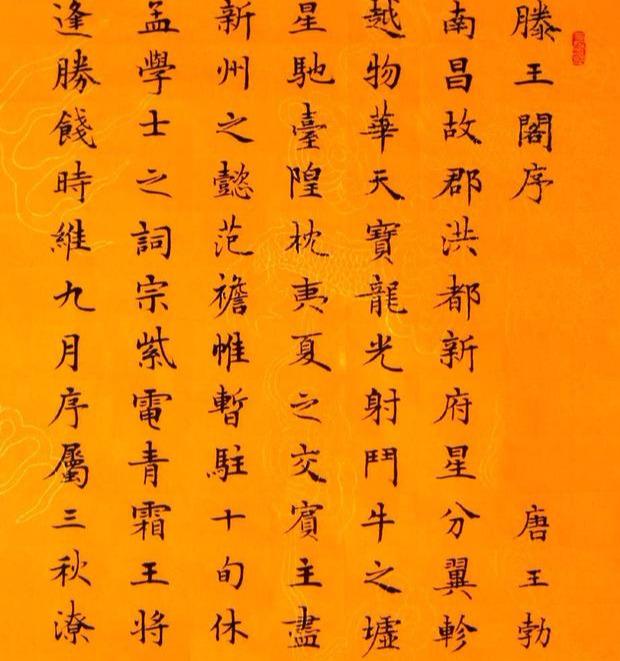 滕王閣序 唐王勃
南昌故郡洪都新府星分翼軫
越物華天寶龍光射鬥牛之墟
星馳臺隍枕夷夏之交賓主盡
新州之懿范襜帷暫駐十旬休
孟學士之詞宗紫電青霜王將
逢勝餞時維九月序屬三秋潦